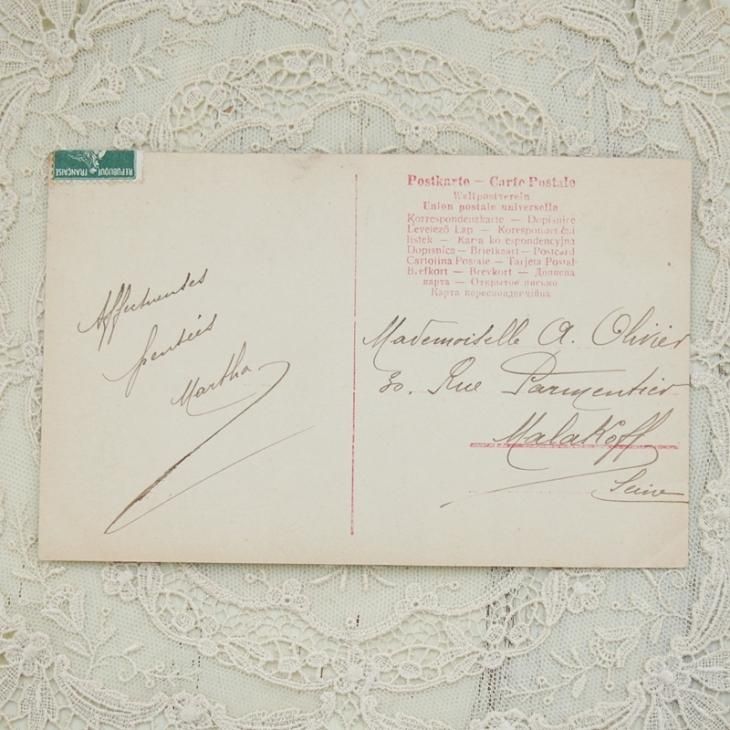 REPUBLIQUE FRANÇAISE
Postkarte — Carte Postale
Weltpostverein
Union postale universelle
Korrespondenzkarte — Dopisnice
Levelező Lap — Korespondenční
lístek — Karta korespondencyjna
Dopisnica — Briefkaart — Postcard
Cartolina Postale — Tarjeta Postal
Brefkort — Brevkort — Дописна
карта — Открытое письмо
Карта кореспонденчійна
Affectueuses
pensées
Martha
Mademoiselle A. Olivier
30. Rue Parmentier
Malakoff
Seine